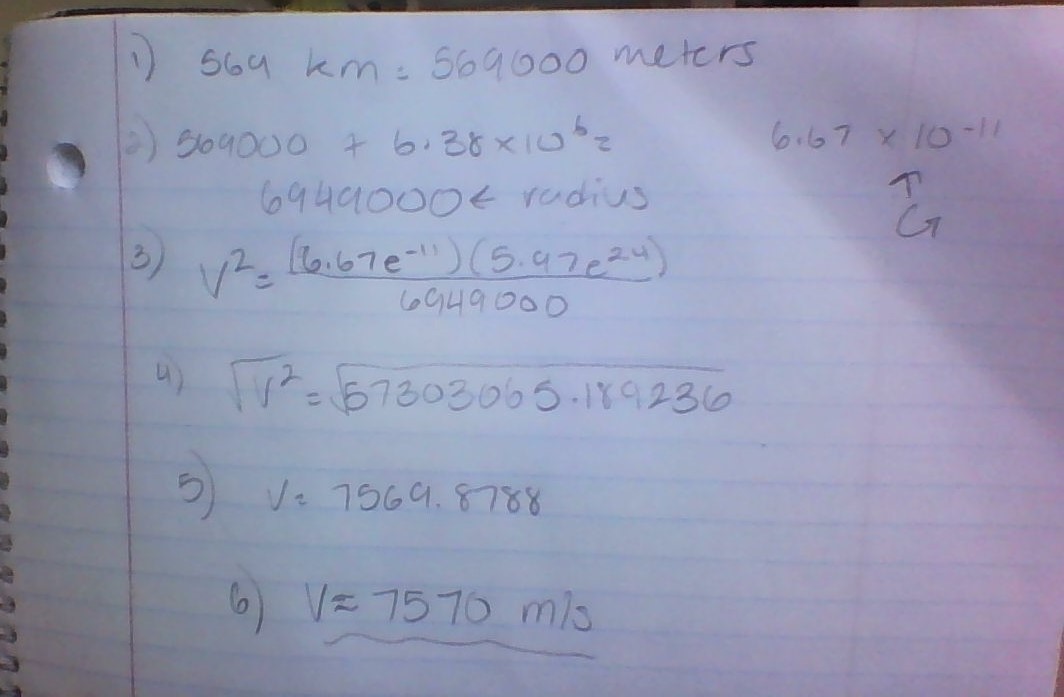 1) 569 km = 569000 meters
2) 569000 + 6.38 × 10⁶ =
6.67 × 10⁻¹¹
6949000 ← radius
↑
G
3) V² = (6.67e⁻¹¹)(5.97e²⁴)
6949000
4) √V² = √57303065.189236
5) V = 7569.8788
6) V = 7570 m/s